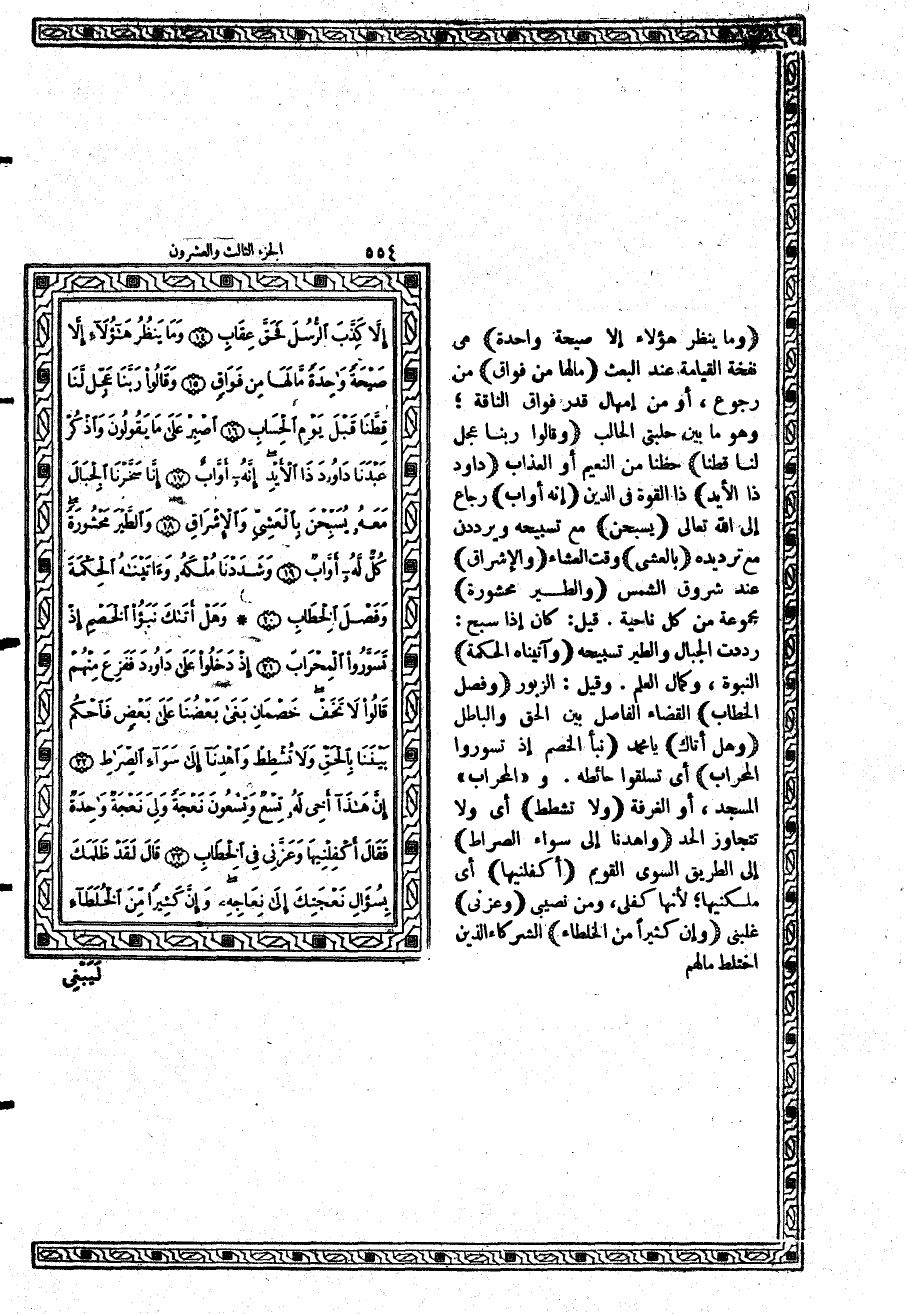 ٥٥٤
الجزء الثالث والعشرون
(وما ينظر هؤلاء إلا صيحة واحدة) هى
نفخة القيامة عند البعث (مالها من فواق) من
رجوع، أو من إمهال قدر فواق الناقة؛
وهو ما بين حلبتى الحالب (وقالوا ربنا عجل
لنا قطنا) حظنا من النعيم أو العذاب (داود
ذا الأيد) ذا القوة فى الدين (إنه أواب) رجاع
إلى الله تعالى (يسبحن) مع تسبيحه ويرددن
مع ترديده (بالعشى) وقت العشاء (والإشراق)
عند شروق الشمس (والطير محشورة)
مجموعة من كل ناحية. قيل: كان إذا سبح:
رددت الجبال والطير تسبيحه (وآتيناه الحكمة)
النبوة، وكمال العلم. وقيل: الزبور (وفصل
الخطاب) القضاء الفاصل بين الحق والباطل
(وهل أتاك) يامحمد (نبأ الخصم إذ تسوروا
المحراب) أى تسلقوا حائطه. و «المحراب»
المسجد، أو الغرفة (ولا تشطط) أى ولا
تتجاوز الحد (واهدنا إلى سواء الصراط)
إلى الطريق السوى القويم (أكفلنيها) أى
ملكنيها؛ لأنها كفلى، ومن نصيبى (وعزنى)
غلبنى (وإن كثيراً من الخلطاء) الشركاء الذين
اختلط مالهم
إِلَّا كَذَّبَ ٱلرُّسُلَ فَحَقَّ عِقَابِ ﴿١٤﴾ وَمَا يَنظُرُ هَـٰٓؤُلَآءِ إِلَّا
صَيْحَةً وَٰحِدَةً مَّا لَهَا مِن فَوَاقٍ ﴿١٥﴾ وَقَالُوا۟ رَبَّنَا عَجِّل لَّنَا
قِطَّنَا قَبْلَ يَوْمِ ٱلْحِسَابِ ﴿١٦﴾ ٱصْبِرْ عَلَىٰ مَا يَقُولُونَ وَٱذْكُرْ
عَبْدَنَا دَاوُۥدَ ذَا ٱلْأَيْدِ ۖ إِنَّهُۥٓ أَوَّابٌ ﴿١٧﴾ إِنَّا سَخَّرْنَا ٱلْجِبَالَ
مَعَهُۥ يُسَبِّحْنَ بِٱلْعَشِىِّ وَٱلْإِشْرَاقِ ﴿١٨﴾ وَٱلطَّيْرَ مَحْشُورَةً ۖ
كُلٌّ لَّهُۥٓ أَوَّابٌ ﴿١٩﴾ وَشَدَدْنَا مُلْكَهُۥ وَءَاتَيْنَـٰهُ ٱلْحِكْمَةَ
وَفَصْلَ ٱلْخِطَابِ ﴿٢٠﴾ * وَهَلْ أَتَىٰكَ نَبَؤُا۟ ٱلْخَصْمِ إِذْ
تَسَوَّرُوا۟ ٱلْمِحْرَابَ ﴿٢١﴾ إِذْ دَخَلُوا۟ عَلَىٰ دَاوُۥدَ فَفَزِعَ مِنْهُمْ
قَالُوا۟ لَا تَخَفْ ۖ خَصْمَانِ بَغَىٰ بَعْضُنَا عَلَىٰ بَعْضٍ فَٱحْكُم
بَيْنَنَا بِٱلْحَقِّ وَلَا تُشْطِطْ وَٱهْدِنَآ إِلَىٰ سَوَآءِ ٱلصِّرَٰطِ ﴿٢٢﴾
إِنَّ هَـٰذَآ أَخِى لَهُۥ تِسْعٌ وَتِسْعُونَ نَعْجَةً وَلِىَ نَعْجَةٌ وَٰحِدَةٌ
فَقَالَ أَكْفِلْنِيهَا وَعَزَّنِى فِى ٱلْخِطَابِ ﴿٢٣﴾ قَالَ لَقَدْ ظَلَمَكَ
بِسُؤَالِ نَعْجَتِكَ إِلَىٰ نِعَاجِهِۦ ۖ وَإِنَّ كَثِيرًا مِّنَ ٱلْخُلَطَآءِ
لَيَبْغِى